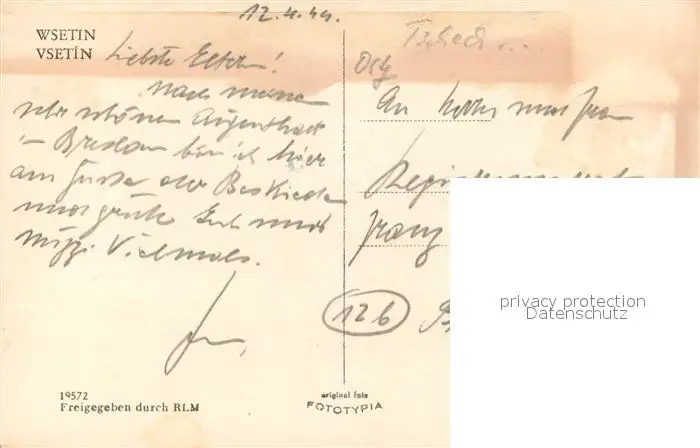 12.4.44.
WSETIN
VSETÍN
Liebste Eltern!
Nach meinem
sehr schönen Aufenthalt
in Breslau bin ich hier
am Fusse der Beskiden
und grüße Euch und
Vielmals.
19572
Freigegeben durch RLM
Tschech...
An Herrn und Frau
Franz
12b
original foto
FOTOTYPIA
privacy protection
Datenschutz